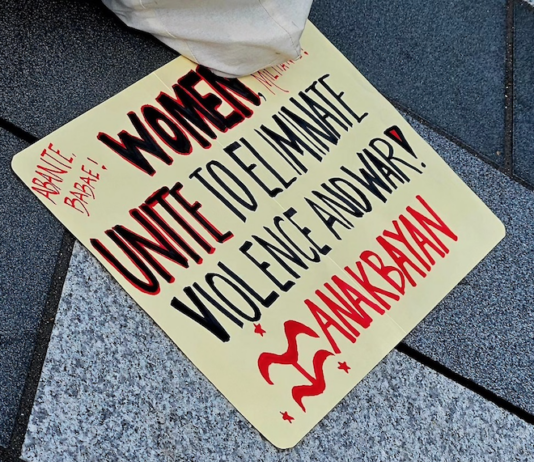 ABANTE,
BABAE!
WOMEN,
UNITE TO ELIMINATE
VIOLENCE AND WAR!
ANAKBAYAN